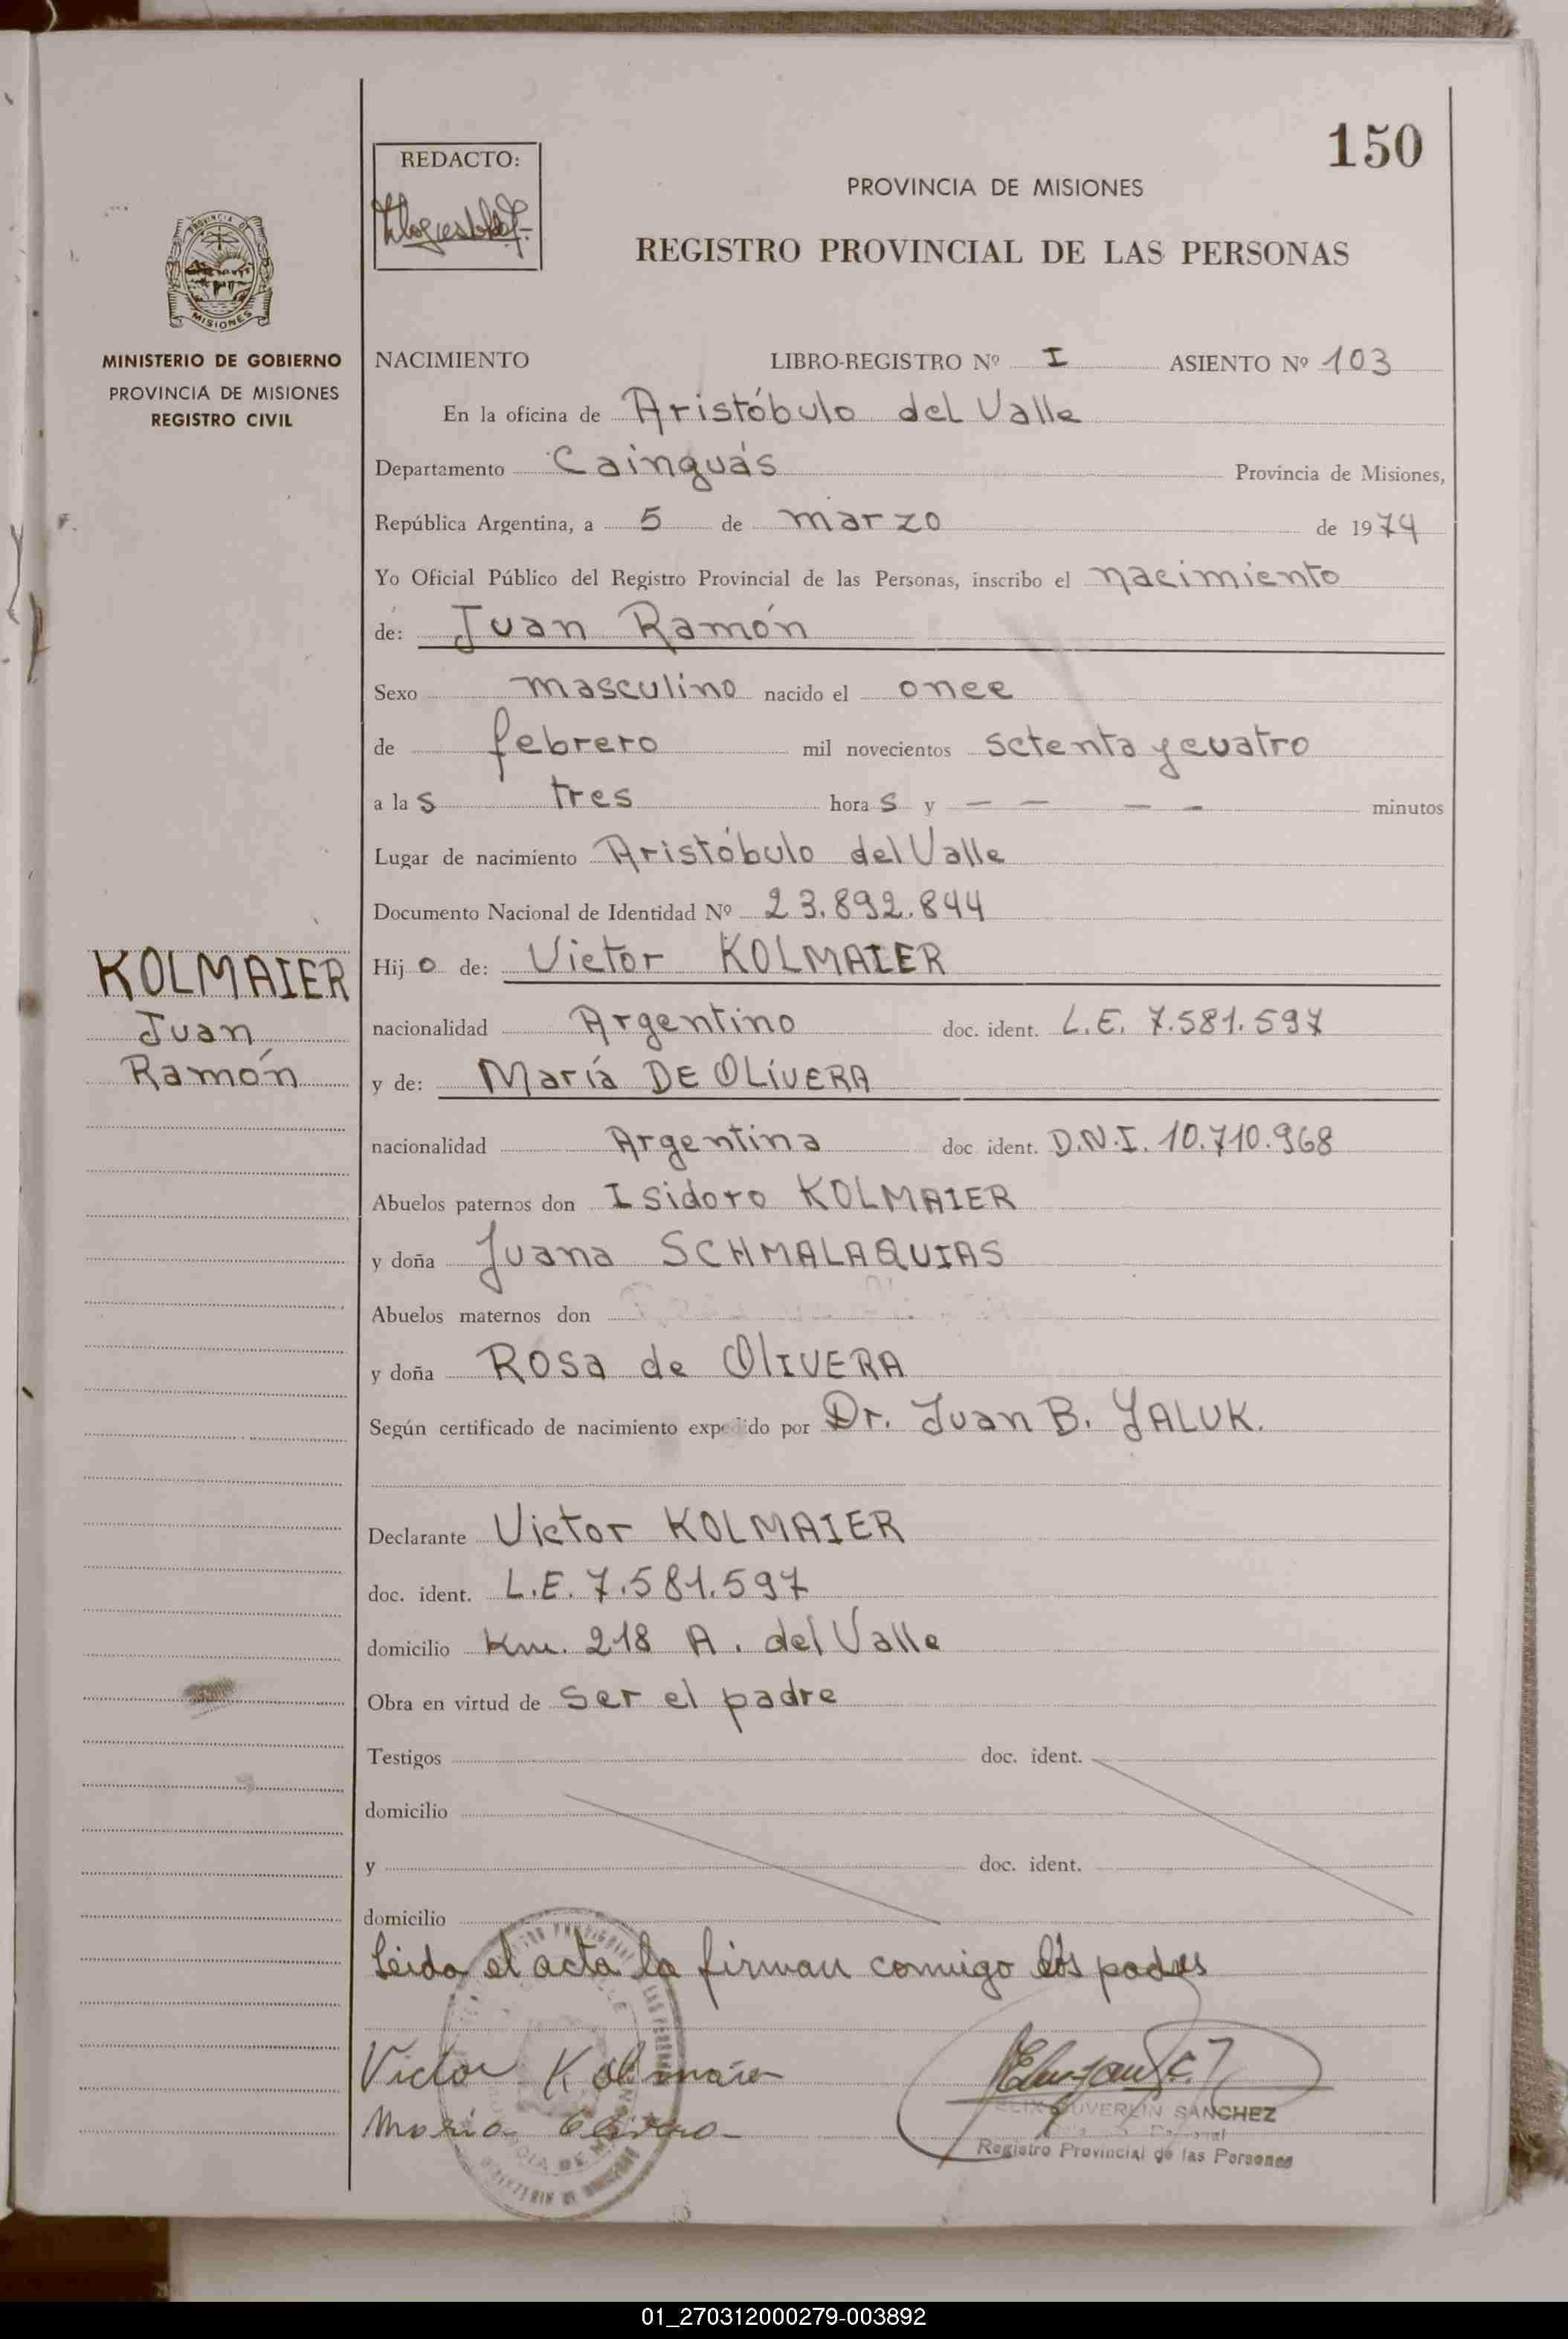 150
REDACTO:
PROVINCIA DE MISIONES
REGISTRO PROVINCIAL DE LAS PERSONAS
PROVINCIA DE
MISIONES
MINISTERIO DE GOBIERNO
PROVINCIA DE MISIONES
REGISTRO CIVIL
NACIMIENTO LIBRO-REGISTRO Nº I ASIENTO Nº 103
En la oficina de Aristóbulo del Valle
Departamento Cainguás Provincia de Misiones,
República Argentina, a 5 de marzo de 1974
Yo Oficial Público del Registro Provincial de las Personas, inscribo el nacimiento
de: Juan Ramón
Sexo masculino nacido el once
de febrero mil novecientos setenta y cuatro
a las tres horas y — — — — minutos
Lugar de nacimiento Aristóbulo del Valle
Documento Nacional de Identidad Nº 23.892.844
KOLMAIER
Juan
Ramón
Hijo de: Victor KOLMAIER
nacionalidad Argentino doc. ident. L.E. 7.581.597
y de: María DE OLIVERA
nacionalidad Argentina doc. ident. D.N.I. 10.710.968
Abuelos paternos don Isidoro KOLMAIER
y doña Juana SCHMALAQUIAS
Abuelos maternos don
y doña Rosa de OLIVERA
Según certificado de nacimiento expedido por Dr. Juan B. YALUK.
Declarante Victor KOLMAIER
doc. ident. L.E. 7.581.597
domicilio Km. 218 A. del Valle
Obra en virtud de ser el padre
Testigos doc. ident.
domicilio
y doc. ident.
domicilio
Leida el acta la firman conmigo los padres
Victor Kolmaier
Maria Olivera
SANCHEZ
Registro Provincial de las Personas
01_270312000279-003892